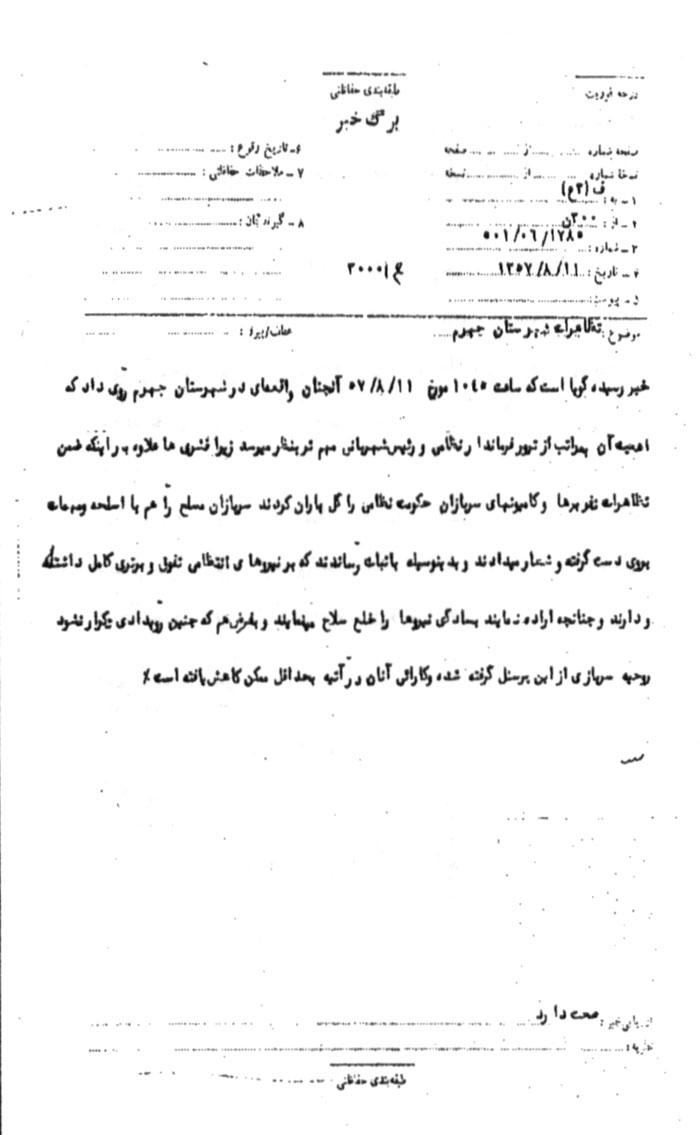 طبقه‌بندی حفاظتی
درجه فوریت
برگ خبر
صفحه شماره ... از ... صفحه
۶ـ تاریخ وقوع :
نسخه شماره ... از ... نسخه
۷ ـ ملاحظات حفاظتی :
۱ ـ به : ف (۳ع)
۲ ـ از : ۳۰۰ن
۸ ـ گیرندگان :
۳ ـ شماره : ۵۰۱/۰۶/۱۷۸۵
۴ ـ تاریخ : ۱۳۵۷/۸/۱۱
۵ ـ پیوست :
موضوع : تظاهرات شهرستان جهرم
عطف/پیرو :
خبر رسیده گویا است که ساعت ۱۰۴۵ مورخ ۵۷/۸/۱۱ آنچنان واقعه‌ای در شهرستان جهرم روی داد که
اهمیت آن بمراتب از ترور فرماندار نظامی و رئیس شهربانی مهم تر بنظر میرسد زیرا قشری ها علاوه بر اینکه ضمن
تظاهرات نفربرها و کامیونهای سربازان حکومت نظامی را گل باران کردند سربازان مسلح را هم با اسلحه ومهمات
بروی دست گرفته و شعار میدادند و بدینوسیله باثبات رساندند که بر نیروهای انتظامی تفوق و برتری کامل داشته
و دارند و چنانچه اراده نمایند بسادگی نیروها را خلع سلاح مینمایند و بفرض هم که چنین رویدادی تکرار نشود
روحیه سربازی از این پرسنل گرفته شده وکارائی آنان در آتیه بحداقل ممکن کاهش یافته است٪
ارزیابی خبر : صحت دارد
نظریه :
طبقه‌بندی حفاظتی